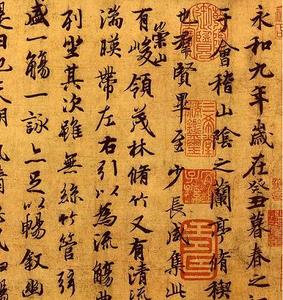 永和九年歲在癸丑暮春之
于會稽山陰之蘭亭脩稧
也羣賢畢至少長咸集此
有崇山峻領茂林脩竹又有清流
湍暎帶左右引以為流觴曲
列坐其次雖無絲竹管弦
盛一觴一詠亦足以暢敘幽
是日也